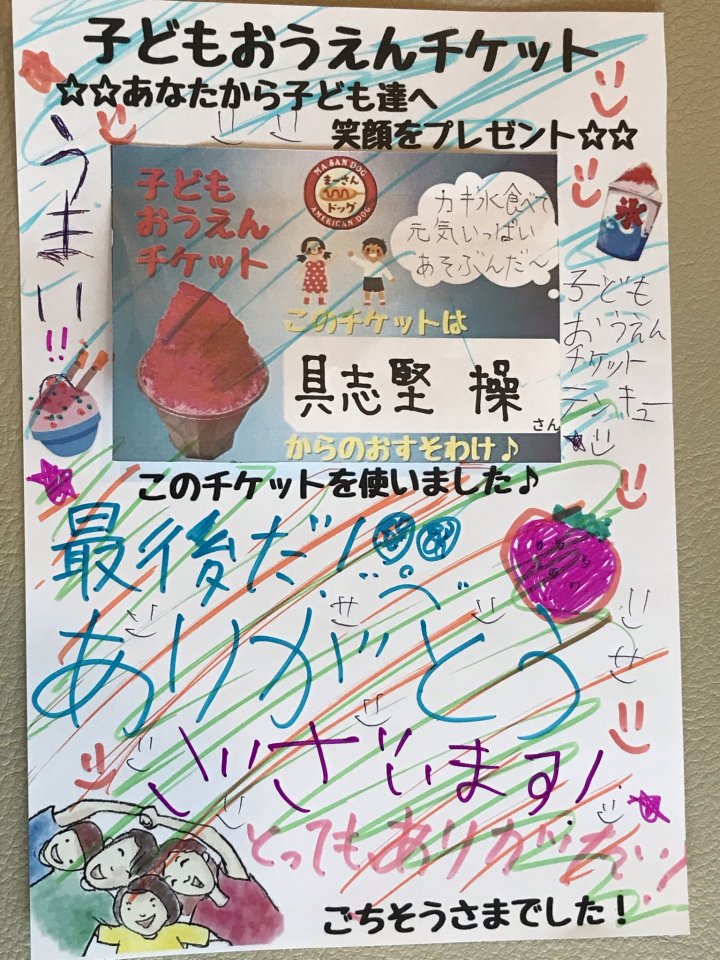 子どもおうえんチケット
☆☆あなたから子ども達へ
笑顔をプレゼント☆☆
うまい!!
子ども
おうえん
チケット
MA SAN DOG
まーさん
ドッグ
AMERICAN DOG
カキ氷食べて
元気いっぱい
あそぶんだ〜
このチケットは
具志堅 操
さん
からのおすそわけ♪
氷
子ども
おうえん
チケット
テンキュー
このチケットを使いました♪
最後だ!
ありがとう
ございます!
とってもありがたい!
ごちそうさまでした！